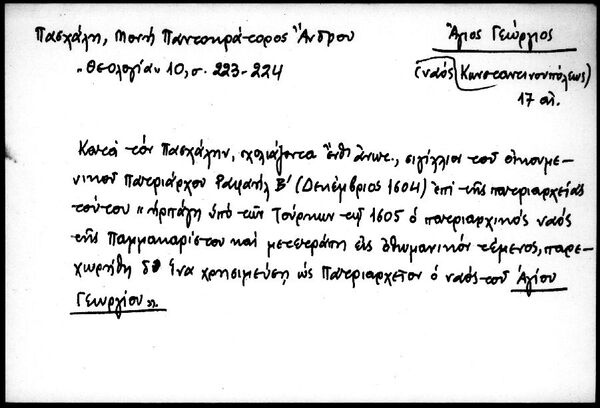 Πασχάλη, Μονή Παντοκράτορος Ἄνδρου
Ἅγιος Γεώργιος
"Θεολογία" 10, σ. 223-224
(ναός Κωνσταντινουπόλεως)
17 αἰ.
Κατά τόν Πασχάλην, σχολιάζοντα ἔνθ' ἄνωτ., σιγίλλιον τοῦ οἰκουμε-
νικοῦ Πατριάρχου Ραφαήλ Β' (Δεκέμβριος 1604) ἐπί τῆς πατριαρχείας
τούτου "ἡρπάγη ὑπό τῶν Τούρκων τῷ 1605 ὁ πατριαρχικός ναός
τῆς Παμμακαρίστου καί μετετράπη εἰς ὀθωμανικόν τέμενος, παρε-
χωρήθη δέ ἵνα χρησιμεύσῃ ὡς Πατριαρχεῖον ὁ ναός τοῦ Ἁγίου
Γεωργίου".